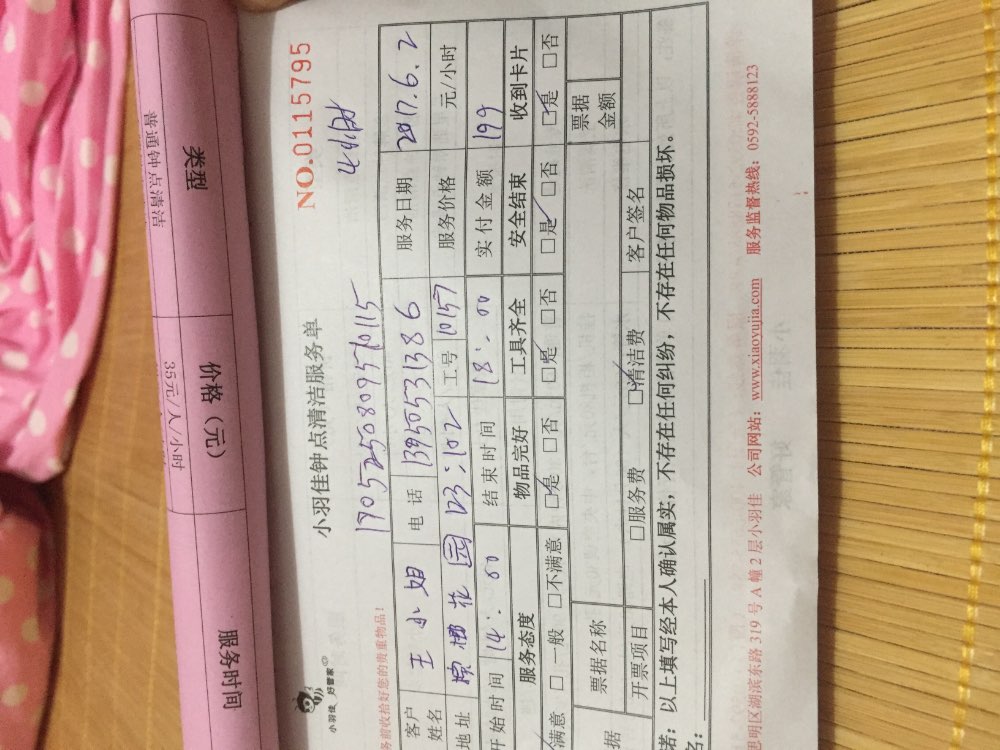 类型
价格（元）
服务时间
普通钟点清洁
35元/人/小时
小羽佳 好管家
小羽佳钟点清洁服务单
NO.0115795
1705250809570115 4小时
务前收拾好您的贵重物品!
客户姓名 王小姐 电话 13950531386 服务日期 2017.6.2
地址 棕榈花园123:102 工号 10157 服务价格 元/小时
开始时间 14:00 结束时间 18:00 实付金额 199
服务态度 物品完好 工具齐全 安全结束 收到卡片
满意 □一般 □不满意 □是 □否 □是 □否 □是 □否 □是 □否
据 票据名称 票据金额
开票项目 □服务费 □清洁费 客户签名
诺：以上填写经本人确认属实，不存在任何纠纷，不存在任何物品损坏。
名：
思明区湖滨东路 319 号 A 幢 2 层小羽佳 公司网站：www.xiaoyujia.com 服务监督热线：0592-5888123